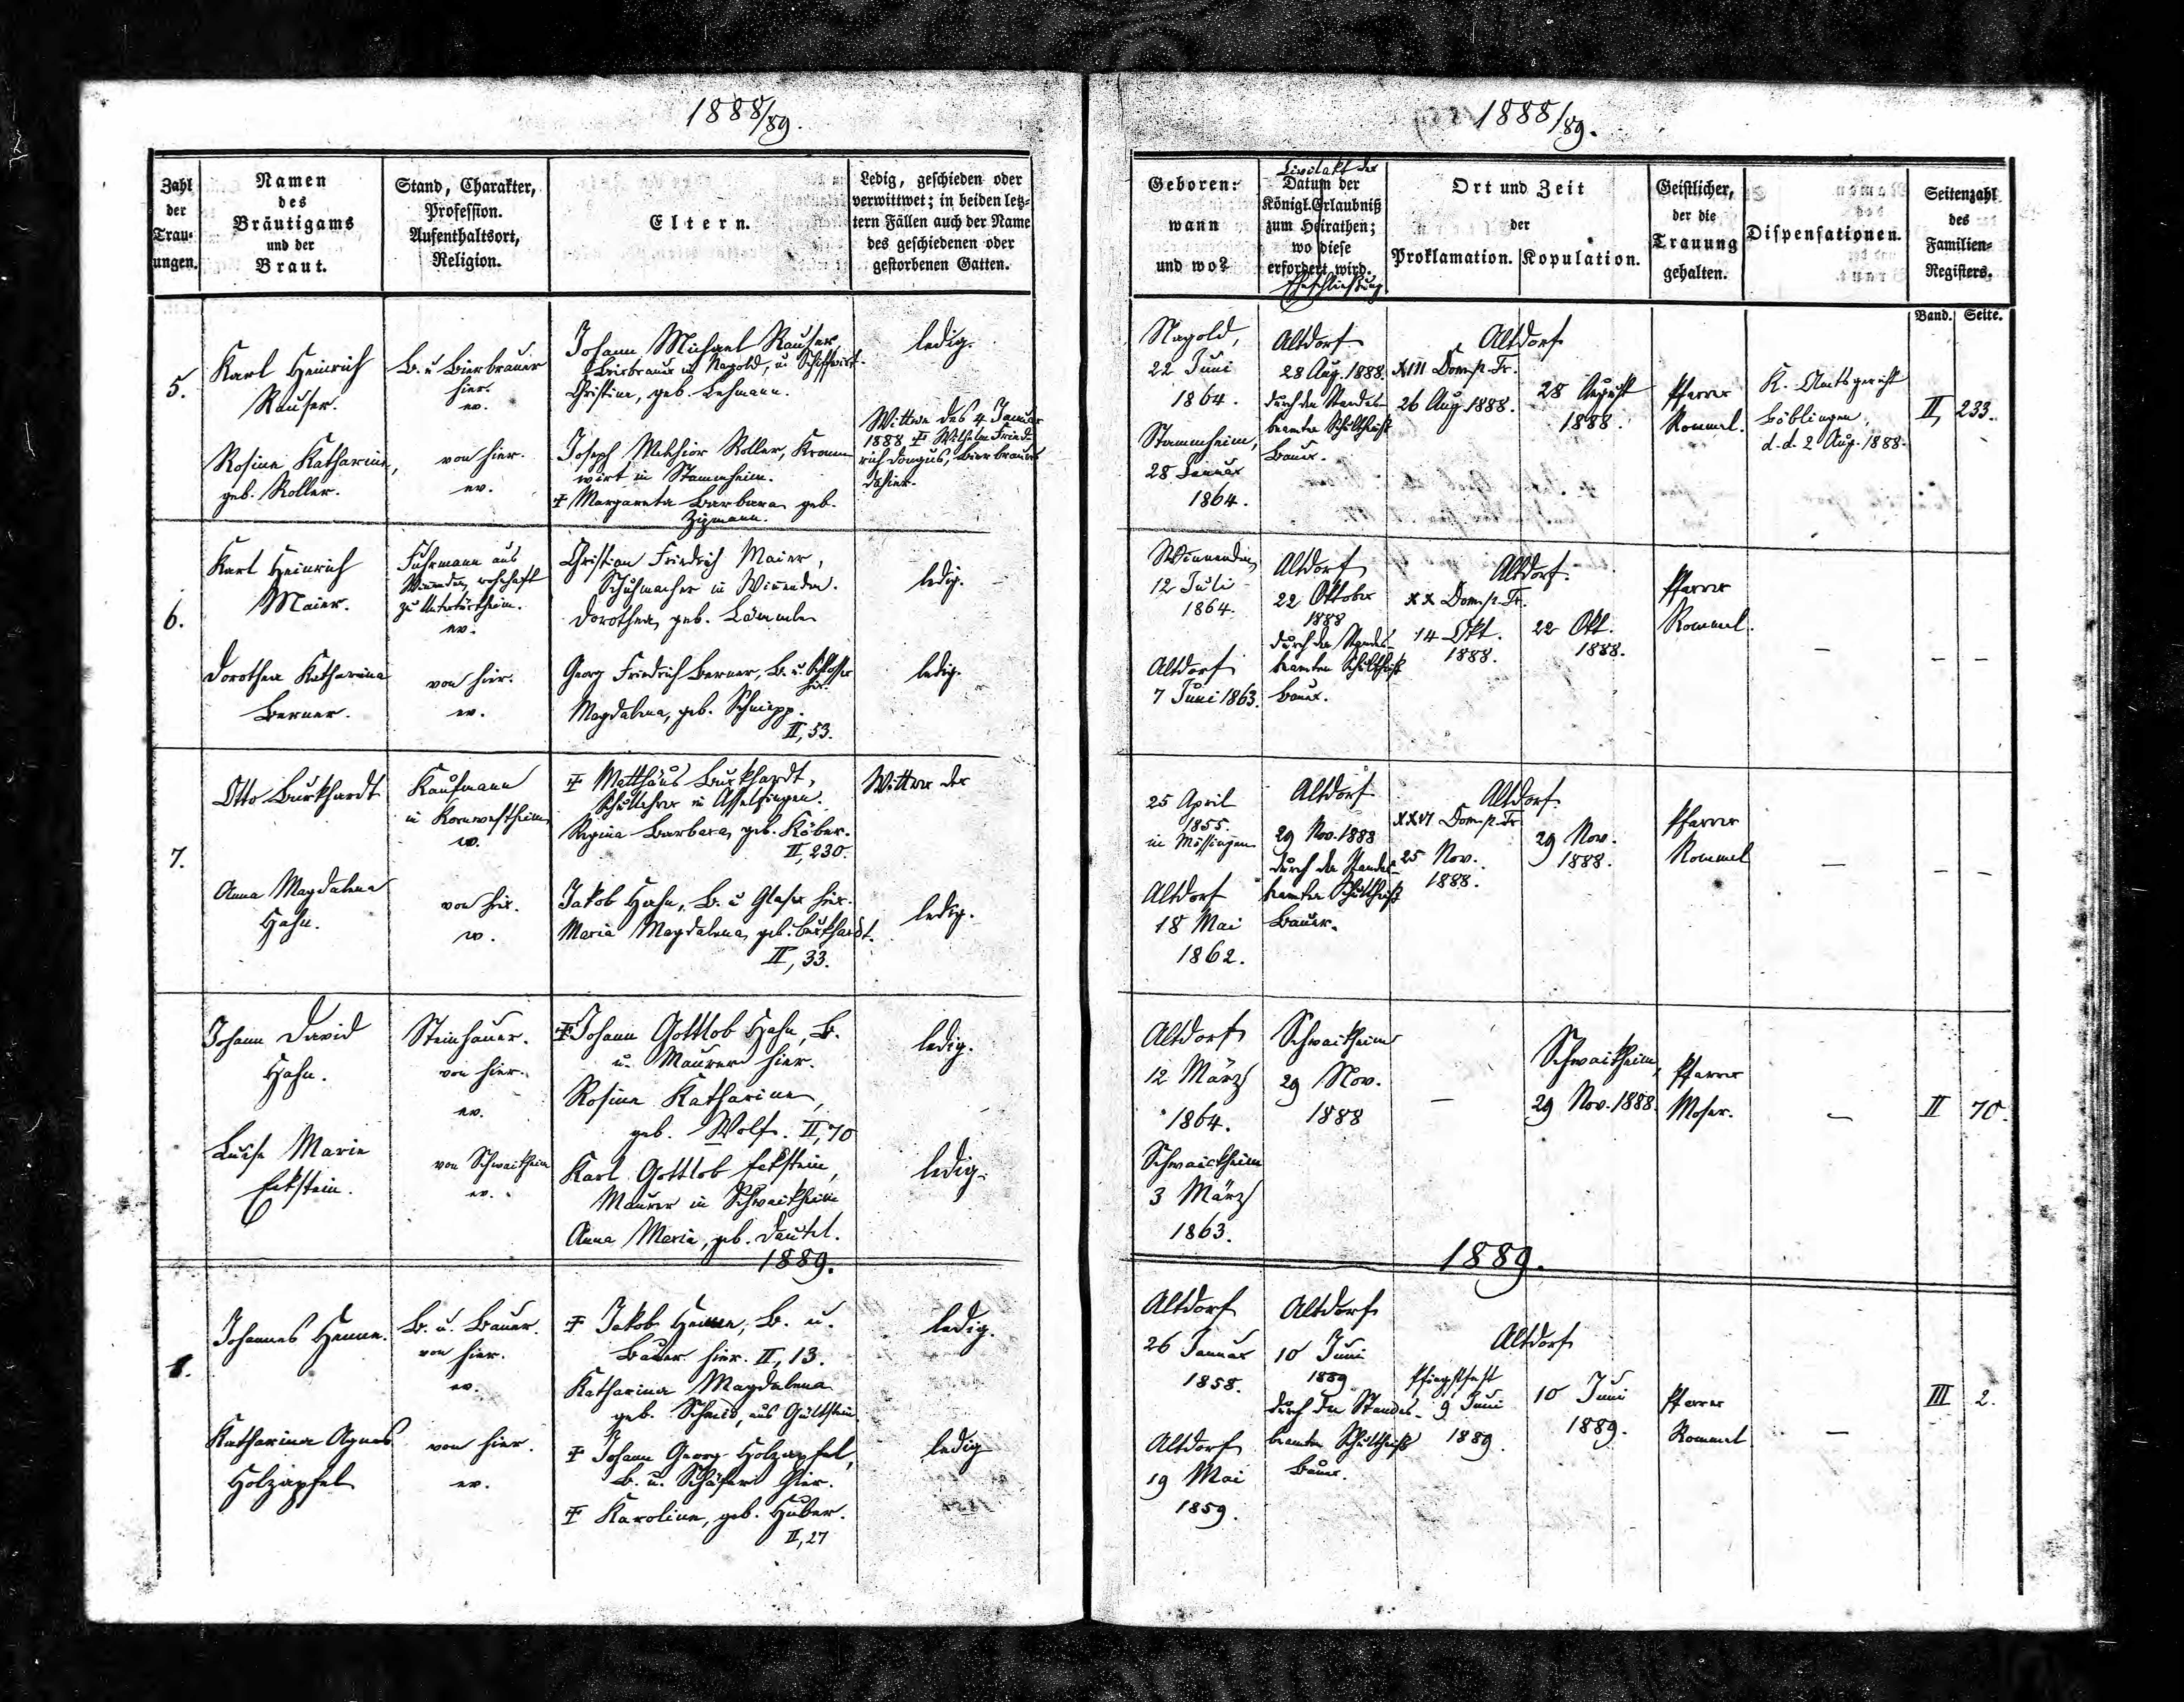 1888/89.
Zahl
der
Trau-
ungen.
Namen
des
Bräutigams
und der
Braut.
Stand, Charakter,
Profession.
Aufenthaltsort,
Religion.
Eltern.
Ledig, geschieden oder
verwittwet; in beiden letz-
tern Fällen auch der Name
des geschiedenen oder
gestorbenen Gatten.
5.
Karl Heinrich
Rauser.
B. u Bierbrauer
hier.
ev.
Johann Michael Rauser,
Bierbrauer in Nagold, u Schiffwirt.
Christine, geb. Lehmann.
ledig.
Rosine Katharine,
geb. Roller.
von hier.
ev.
Joseph Melchior Roller, Kronen
wirt in Stammheim.
‡ Margareta Barbara geb.
Wittwe des 4. Januar
1888 ‡ Wilhelm Fried-
rich Dongus, Bierbrauers
dahier.
6.
Karl Heinrich
Maier.
Fuhrmann aus
Winenden, wohnhaft
zu Untertürkheim.
ev.
Christian Friedrich Maier,
Schuhmacher in Winenden.
Dorothea, geb. Lämmle
ledig.
Dorothea Katharina
Berner.
von hier.
ev.
Georg Friedrich Berner, B. u. Schlosser
hier.
Magdalena, geb. Schnepp.
II, 53.
ledig.
7.
Otto Burkhardt
Kaufmann
in Kornwestheim
ev.
‡ Matthäus Burkhardt,
Schullehrer in Asselfingen.
Regina Barbara, geb. Köber.
II, 230.
Wittwer der
Anna Magdalena
Hahn.
von hier.
ev.
Jakob Hahn, B. u Glaser hier.
Maria Magdalena, geb. Burkhardt.
II, 33.
ledig.
Johann David
Hahn.
Steinhauer.
von hier.
ev.
‡ Johann Gottlob Hahn, B.
u. Maurer hier.
Rosine Katharine,
geb. Wolf. II, 70
ledig.
Luise Marie
Eckstein.
von Schwaikheim
ev.
Karl Gottlob Eckstein,
Maurer in Schwaikheim
Anna Maria, geb. Deutel.
ledig.
1889.
1.
Johannes Henne.
B. u. Bauer.
von hier.
ev.
‡ Jakob Henne, B. u.
Bauer hier. II, 13.
Katharina Magdalena
geb. Schmid, aus Gültstein
ledig.
Katharina Agnes
Holzapfel
von hier.
ev.
‡ Johann Georg Holzapfel,
B. u. Schäfer hier.
‡ Karoline, geb. Huber.
II, 27
ledig
1888/89.
Geboren:
wann
und wo?
Civilakt der
Datum der
Königl. Erlaubniß
zum Heirathen;
wo diese
erfordert wird.
Eheschließung
Ort und Zeit
der
Proklamation.
Kopulation.
Geistlicher,
der die
Trauung
gehalten.
Dispensationen.
Seitenzahl
des
Familien-
Registers.
Band.
Seite.
Nagold,
22 Juni
1864.
Altdorf
28 Aug. 1888.
durch den Standes-
beamten Schultheiß
Bauer.
Altdorf
XIII Dom. p. Tr.
26 Aug. 1888.
28 August
1888.
Pfarrer
Rommel.
K. Amtsgericht
Böblingen
d. d. 2 Aug. 1888.
II, 233.
Stammheim,
28 Januar
1864.
Winnenden
12 Juli
1864.
Altdorf
22 Oktober
1888
durch den Standes-
beamten Schultheiß
Bauer.
Altdorf.
XX Dom. p. Tr.
14 Okt.
1888.
22 Okt.
1888.
Pfarrer
Rommel.
—
— —
Altdorf
7 Juni 1863.
25 April
1855.
in Mössingen
Altdorf
29 Nov. 1888
durch den Standes-
beamten Schultheiß
Bauer.
Altdorf.
XXVI Dom. p. Tr.
25 Nov.
1888.
29 Nov.
1888.
Pfarrer
Rommel
—
— —
Altdorf
18 Mai
1862.
Altdorf
12 März
1864.
Schwaikheim
29 Nov.
1888
—
Schwaikheim,
29 Nov. 1888.
Pfarrer
Moser.
—
II 70.
Schwaickheim
3 März
1863.
1889.
Altdorf
26 Januar
1858.
Altdorf
10 Juni
1889
durch den Standes-
beamten Schultheiß
Bauer.
Altdorf
Pfingstfest
9 Juni
1889.
10 Juni
1889.
Pfarrer
Rommel
—
III 2.
Altdorf
19 Mai
1859.